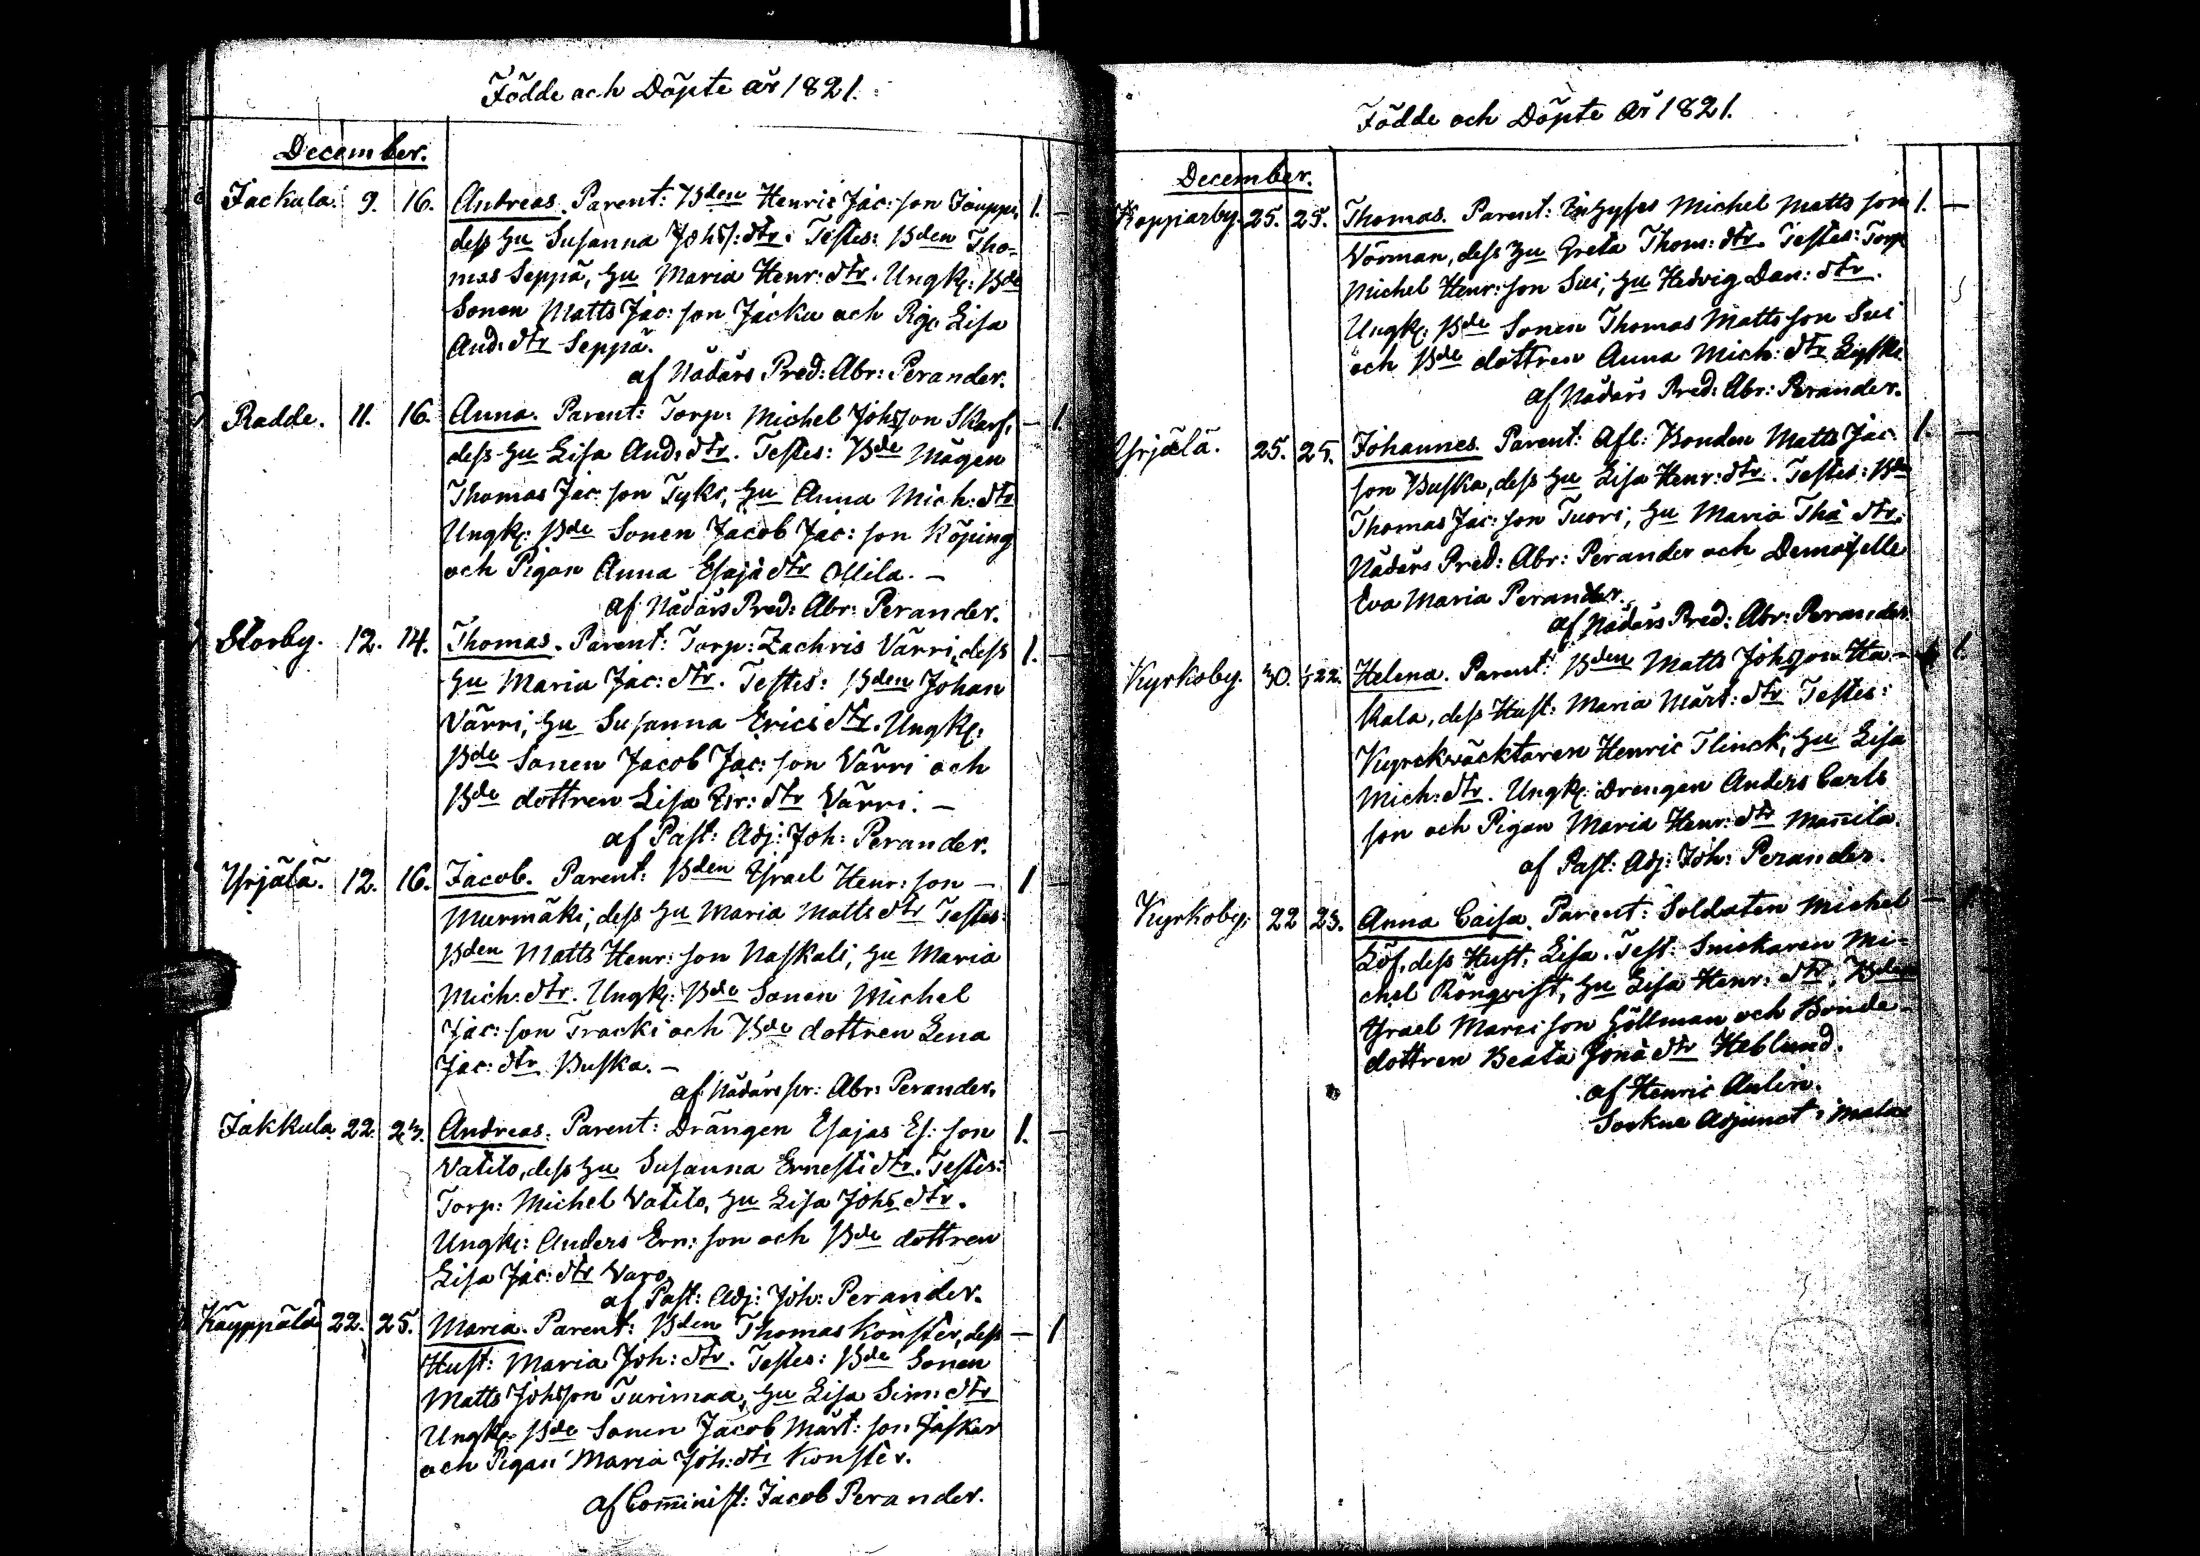 Födde och Döpte år 1821.
December.
Jackula. 9. 16. Andreas. Parent: Bden Henric Jac: son Jouppi, 1. —
dess Hu Susanna Johss: dtr. Testes: Bden Tho-
mas Seppä, Hu Maria Henr: dtr. Ungk: Bde
Sonen Matts Jac: son Jacku och Pig: Lisa
And: dtr Seppä.
af Nådårs Pred: Abr: Perander.
Radde. 11. 16. Anna. Parent: Torp: Michel Johsson Skarf, — 1.
dess Hu Lisa And: dtr. Testes: Bde Mågen
Thomas Jac: son Tyks, Hu Anna Mich: dtr
Ungk: Bde Sonen Jacob Jac: son Köping
och Pigan Anna Esajä dtr Ollila. —
af Nådårs Pred: Abr: Perander.
Storby. 12. 14. Thomas. Parent: Torp: Zachris Värri, dess 1. —
Hu Maria Jac: dtr. Testes: Bden Johan
Värri, Hu Susanna Erics dtr. Ungk:
Bde Sonen Jacob Jac: son Värri och
Bde dottren Lisa Er: dtr Värri. —
af Past: Adj: Joh: Perander.
Yrjälä. 12. 16. Jacob. Parent: Bden Ysrael Henr: son — 1 —
Murmäki, dess Hu Maria Matts dtr Testes:
Bden Matts Henr: son Naskali, Hu Maria
Mich: dtr. Ungk: Bde Sonen Michel
Jac: son Tracki och Bde dottren Lena
Jac: dtr Buska. —
af Nådårs pr: Abr: Perander.
Jakkula. 22. 23. Andreas. Parent: Drängen Esajas Es: son 1. —
Vatilo, dess Hu Susanna Ernesti dtr. Testes:
Torp: Michel Vatilo, Hu Lisa Johs dtr.
Ungk: Anders Ern: son och Bde dottren
Lisa Jac: dtr Varo.
af Past: Adj: Joh: Perander.
Käyppälä 22. 25. Maria. Parent: Bden Thomas Konster, dess — 1
Hust: Maria Joh: dtr. Testes: Bde Sonen
Matts Johsson Turimaa, Hu Lisa Sim: dtr
Ungk: Bde Sonen Jacob Märt: son Jaskar
och Pigan Maria Joh: dtr Konster.
af Com̄inist: Jacob Perander.
Födde och Döpte år 1821.
December.
Kopparby. 25. 25. Thomas. Parent: Michel Matts son 1. —
Vörman, dess Hu Greta Thom: dtr. Testes: Torp
Michel Henr: son Sui, Hu Hedvig Dan: dtr.
Ungk: Bde Sonen Thomas Matts son Sui
och Bde dottren Anna Mich: dtr
af Nådårs Pred: Abr: Perander.
Yrjälä. 25. 25. Johannes. Parent: Afl: Bonden Matts Jac: 1. —
son Buska, dess Hu Lisa Henr: dtr. Testes: Bde
Thomas Jac: son Tuori, Hu Maria Tho dtr:
Nådårs Pred: Abr: Perander och Demoiselle
Eva Maria Perander.
af Nådårs Pred: Abr: Perander.
Kyrkoby. 30. Helena. Parent: Bden Matts Johsson Ha- 1.
kala, dess Hust: Maria Märt: dtr Testes:
Kyrckväcktaren Henric Flinck, Hu Lisa
Mich: dtr. Ungk: Drengen Anders Carls
son och Pigan Maria Henr: dtr Man̄ila.
af Past: Adj: Joh: Perander.
Kyrkoby. 22 23. Anna Caisa. Parent: Soldaten Michel —
Löf, dess Hust: Lisa. Test: Snickaren Mi-
chel Rönqvist, Hu Lisa Henr: dtr, Bden
Ysrael Marci son Göllman och Bonde-
dottren Beata Jonä dtr Heblund.
af Henric Aulin.
Sockne Adjunct i